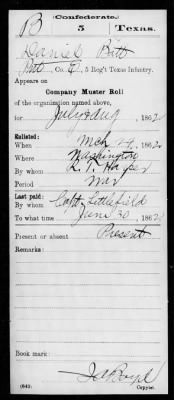 (Confederate.)
B 5 Texas.
Daniel Bitt
Pvt, Co. E, 5 Reg't Texas Infantry.
Appears on
Company Muster Roll
of the organization named above,
for July & Aug, 1862
Enlisted:
When Mch 24, 1862
Where Washington
By whom R. T. Harper
Period War
Last paid:
By whom Capt. Littlefield
To what time June 30, 1862
Present or absent Present
Remarks:
Book mark:
(642) Copyist.